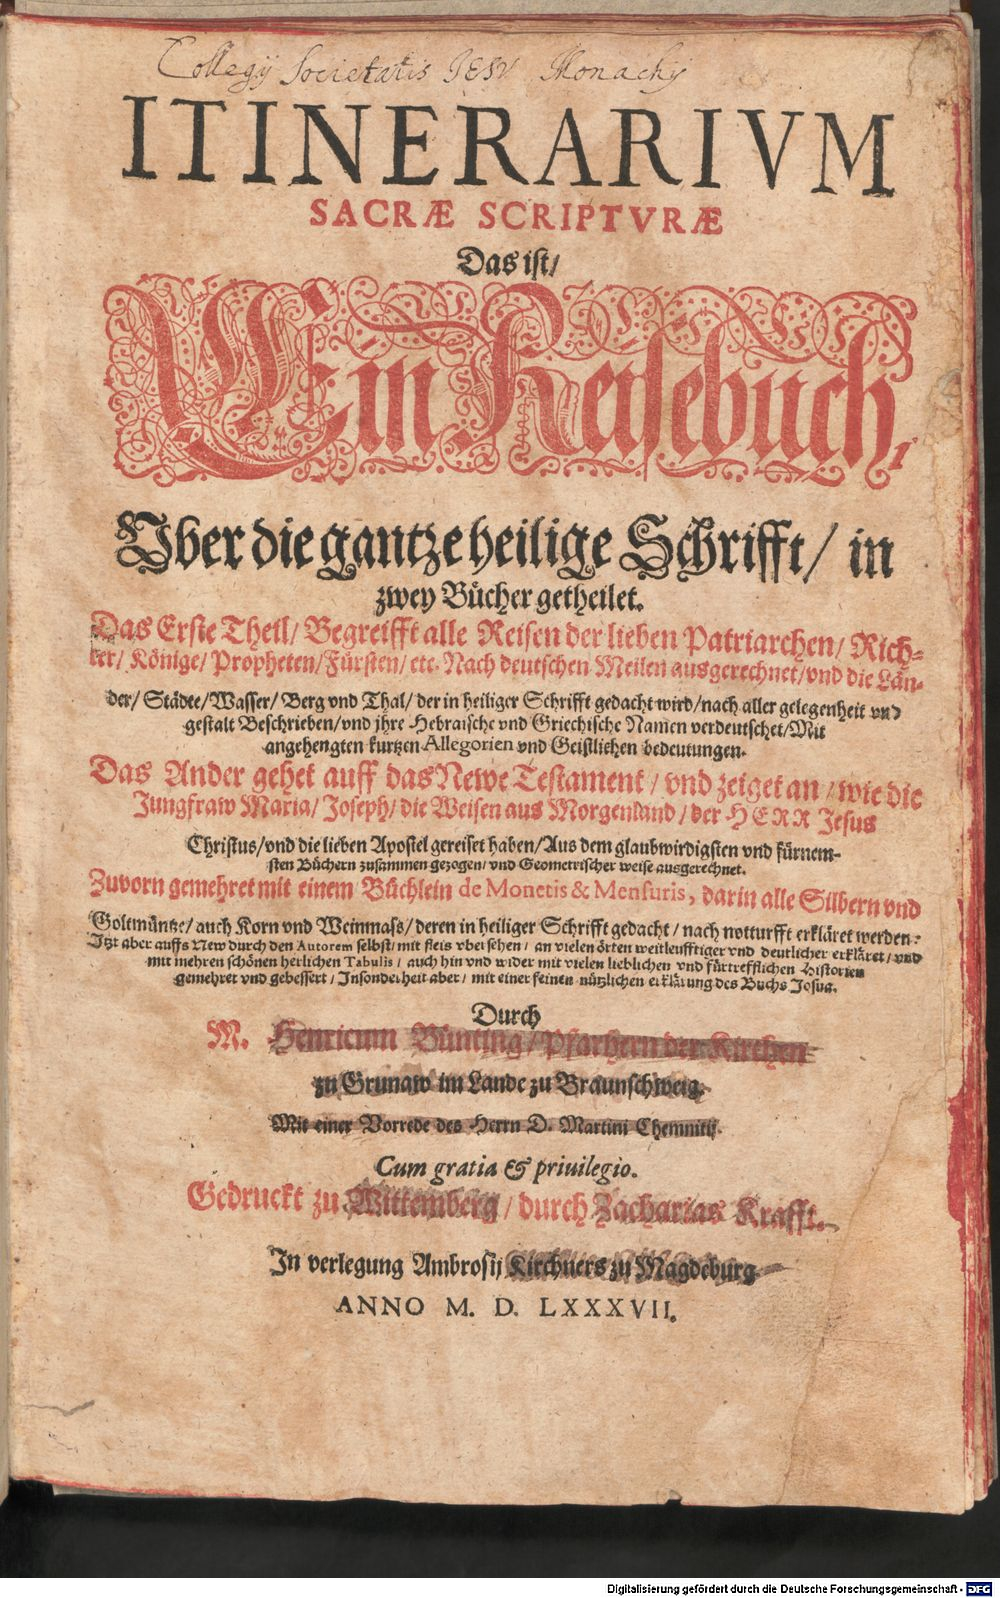 Collegij Societatis IESV Monachij
ITINERARIVM
SACRÆ SCRIPTVRÆ
Das ist/
Ein Reisebuch,
Vber die gantze heilige Schrifft/ in
zwey Bücher getheilet.
Das Erste Theil/ Begreifft alle Reisen der lieben Patriarchen/ Rich-
ter/ Könige/ Propheten/ Fürsten/ etc. Nach deutschen Meilen ausgerechnet/ vnd die Län-
der/ Städte/ Wasser/ Berg vnd Thal/ der in heiliger Schrifft gedacht wird/ nach aller gelegenheit vnd
gestalt Beschrieben/ vnd jhre Hebraische vnd Griechische Namen verdeutschet/ Mit
angehengten kurtzen Allegorien vnd Geistlichen bedeutungen.
Das Ander gehet auff das Newe Testament/ vnd zeiget an/ wie die
Jungfraw Maria/ Joseph/ die Weisen aus Morgenland/ der HERR Jesus
Christus/ vnd die lieben Apostel gereiset haben/ Aus dem glaubwirdigsten vnd fürnem-
sten Büchern zusammen gezogen/ vnd Geometrischer weise ausgerechnet.
Zuvorn gemehret mit einem Büchlein de Monetis & Mensuris, darin alle Silbern vnd
Goltmüntze/ auch Korn vnd Weinmass/ deren in heiliger Schrifft gedacht/ nach notturfft erkläret werden:
Itzt aber auffs New durch den Autorem selbst/ mit fleis vbersehen/ an vielen örten weitleufftiger vnd deutlicher erkläret/ vnd
mit mehren schönen herlichen Tabulis/ auch hin vnd wider mit vielen lieblichen vnd fürtrefflichen Historien
gemehret vnd gebessert/ Insonderheit aber/ mit einer feinen nützlichen erklärung des Buchs Josua.
Durch
M. Henricum Bünting/ Pfarhern der Kirchen
zu Grunaw im Lande zu Braunschweig.
Mit einer Vorrede des Herrn D. Martini Chemnitij.
Cum gratia & priuilegio.
Gedruckt zu Wittemberg/ durch Zacharias Krafft.
In verlegung Ambrosij Kirchners zu Magdeburg
ANNO M. D. LXXXVII.
Digitalisierung gefördert durch die Deutsche Forschungsgemeinschaft - DFG